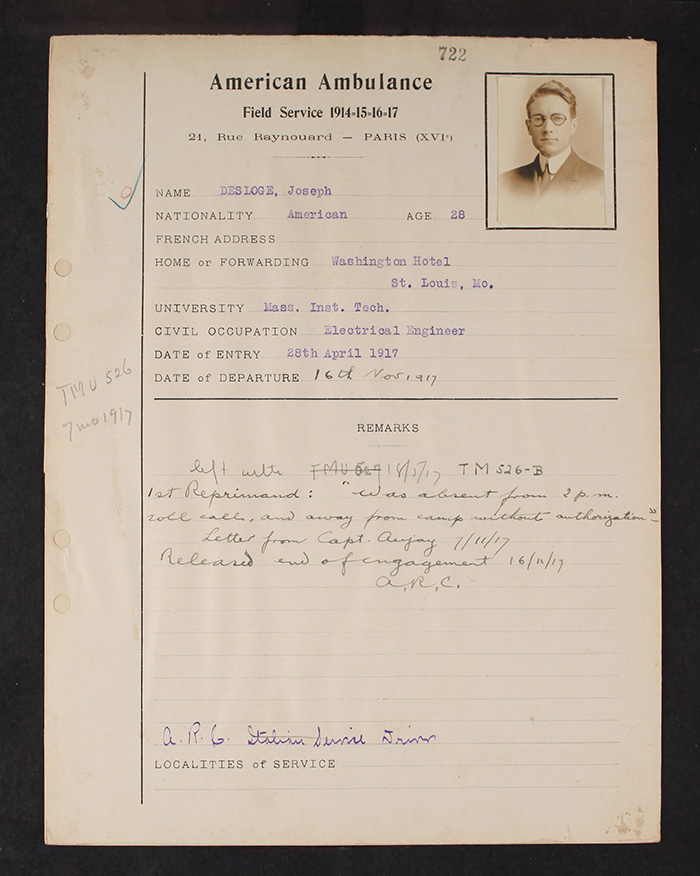 722
American Ambulance
Field Service 1914-15-16-17
21, Rue Raynouard — PARIS (XVIe)
NAME DESLOGE, Joseph
NATIONALITY American AGE 28
FRENCH ADDRESS
HOME or FORWARDING Washington Hotel
St. Louis, Mo.
UNIVERSITY Mass. Inst. Tech.
CIVIL OCCUPATION Electrical Engineer
DATE of ENTRY 28th April 1917
DATE of DEPARTURE 16th Nov, 917
TMU 526
7 mo 1917
REMARKS
left with TMU 18/5/17 TM 526-B
1st Reprimand: "Was absent from 2 p.m.
roll calls, and away from camp without authorization"-
Letter from Capt. Aujay 7/11/17
Released end of engagement 16/11/17
A.R.C.
A.R.C. Italian Service Driver
LOCALITIES of SERVICE